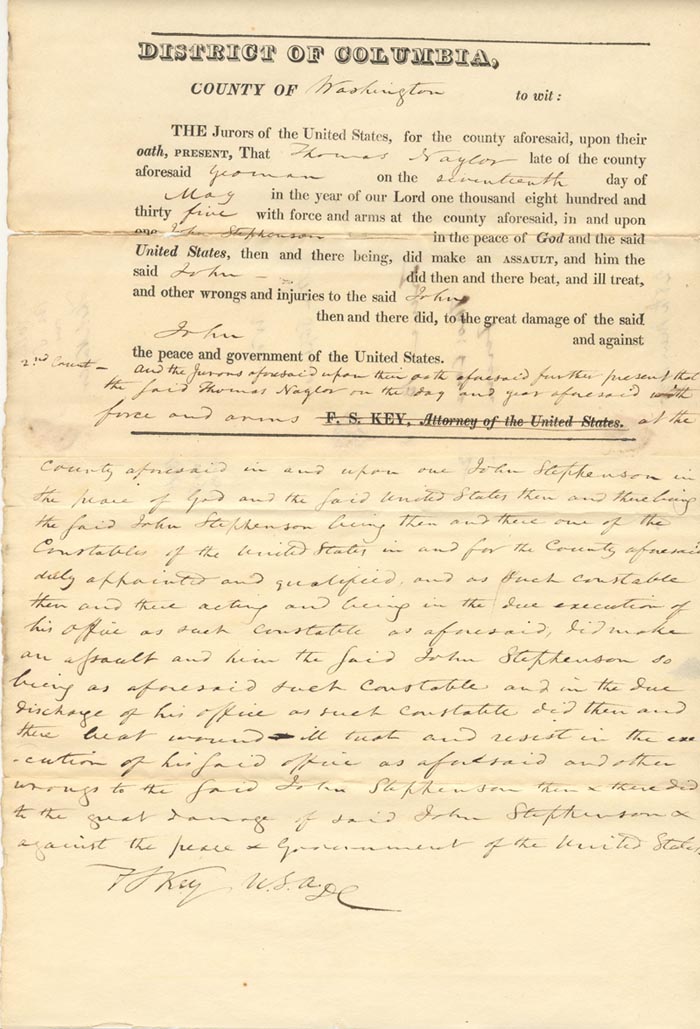 DISTRICT OF COLUMBIA,
COUNTY OF Washington to wit:
THE Jurors of the United States, for the county aforesaid, upon their
oath, PRESENT, That Thomas Naylor late of the county
aforesaid yeoman on the seventeenth day of
May in the year of our Lord one thousand eight hundred and
thirty five with force and arms at the county aforesaid, in and upon
one John Stephenson in the peace of God and the said
United States, then and there being, did make an ASSAULT, and him the
said John – did then and there beat, and ill treat,
and other wrongs and injuries to the said John
then and there did, to the great damage of the said
John and against
the peace and government of the United States.
2nd Count – And the Jurors aforesaid upon their oath aforesaid further present that
the said Thomas Naylor on the day and year aforesaid with
force and arms F. S. KEY, Attorney of the United States. at the
County aforesaid in and upon one John Stephenson in
the peace of God and the said United States then and there being
the said John Stephenson being then and there one of the
Constables of the United States in and for the County aforesaid
duly appointed and qualified, and as such constable
then and there acting and being in the due execution of
his office as such Constable as aforesaid, did make
an assault and him the said John Stephenson so
being as aforesaid such Constable and in the due
discharge of his office as such Constable did then and
there beat wound ill treat and resist in the exe
-cution of his said office as aforesaid and other
wrongs to the said John Stephenson then & there did
to the great damage of said John Stephenson &
against the peace & Government of the United States.
F S Key U.S.A. DC